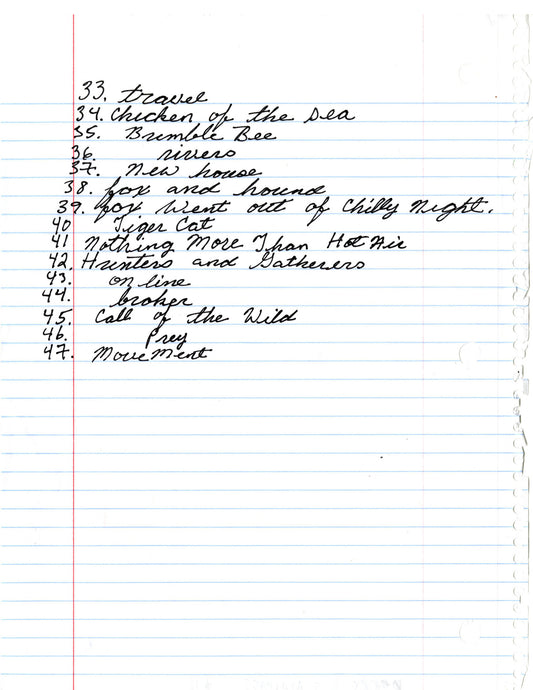 33. travel
34. Chicken of the Sea
35. Bumble Bee
36. rivers
37. New house
38. fox and hound
39. fox Went out of Chilly Night.
40 Tiger Cat
41 Nothing More Than Hot Air
42. Hunters and Gatherers
43. on line
44. broker
45. Call of the Wild
46. Prey
47. MoveMent